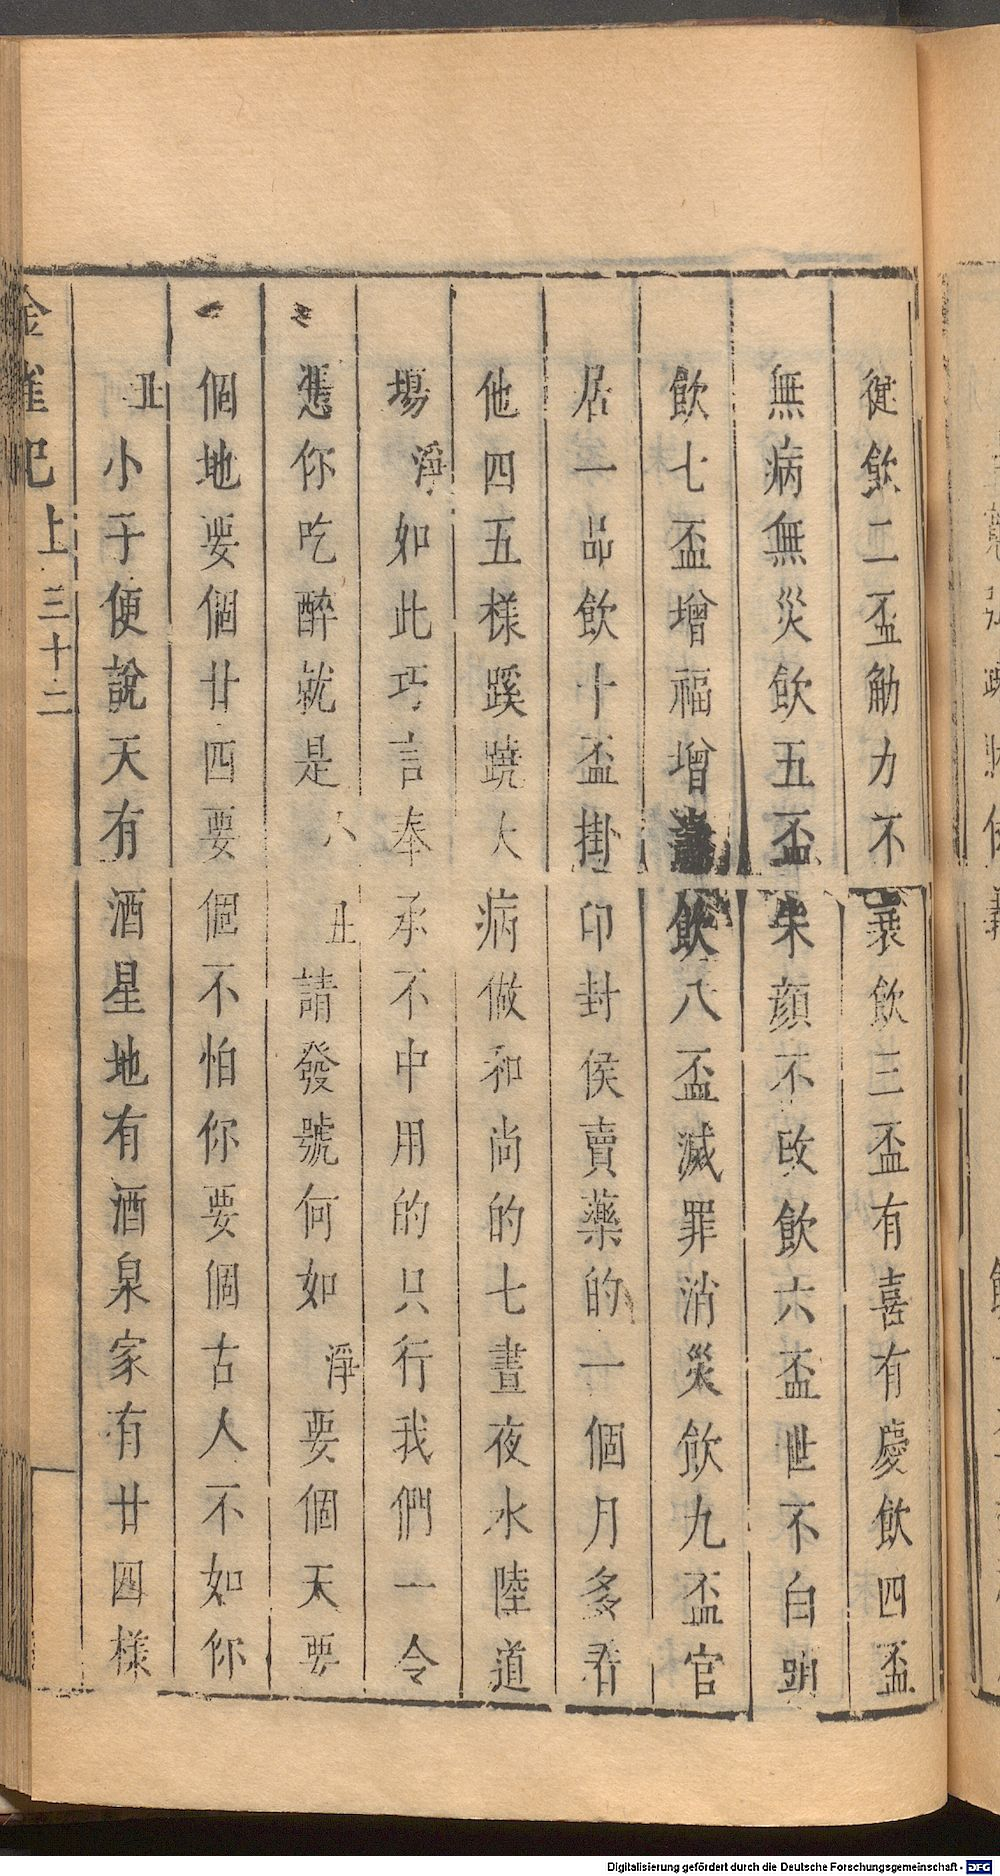 從飲二盃觔力不衰飲三盃有喜有慶飲四盃
無病無災飲五盃朱顔不改飲六盃世不白頭
飲七盃增福增壽飲八盃滅罪消災飲九盃官
居一品飲十盃掛印封侯賣藥的一個月多看
他四五樣蹊蹺大病做和尚的七晝夜水陸道
場淨如此巧言奉承不中用的只行我們一令
憑你吃醉就是小丑請發號何如淨要個天要
個地要個廿四要個不怕你要個古人不如你
丑小子便說天有酒星地有酒泉家有廿四樣
金雀記上三十二
Digitalisierung gefördert durch die Deutsche Forschungsgemeinschaft - DFG